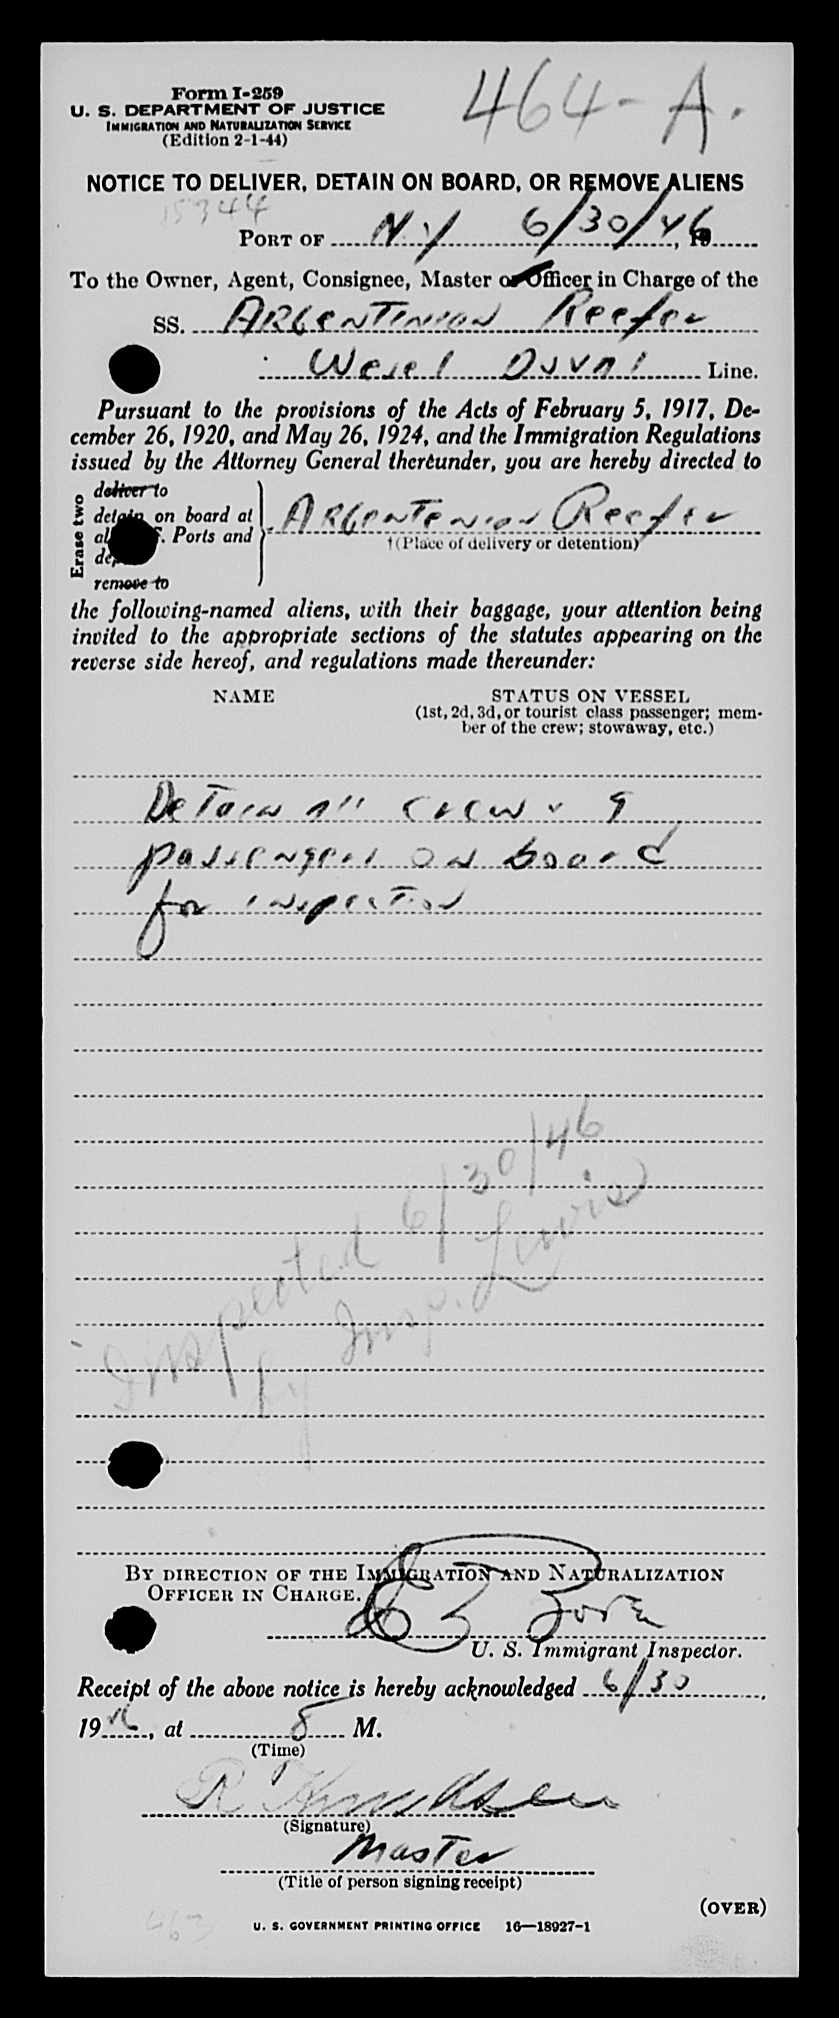 464-A.
Form I-259
U. S. DEPARTMENT OF JUSTICE
IMMIGRATION AND NATURALIZATION SERVICE
(Edition 2-1-44)
NOTICE TO DELIVER, DETAIN ON BOARD, OR REMOVE ALIENS
15344
PORT OF N.Y 6/30/46, 19
To the Owner, Agent, Consignee, Master or Officer in Charge of the
SS. Argentinian Reefer
Wesel Duval Line.
Pursuant to the provisions of the Acts of February 5, 1917, De-
cember 26, 1920, and May 26, 1924, and the Immigration Regulations
issued by the Attorney General thereunder, you are hereby directed to
Erase two
deliver to
detain on board at
Ports and
remove to
Argentenion Reefer
†(Place of delivery or detention)
the following-named aliens, with their baggage, your attention being
invited to the appropriate sections of the statutes appearing on the
reverse side hereof, and regulations made thereunder:
NAME
STATUS ON VESSEL
(1st, 2d, 3d, or tourist class passenger; mem-
ber of the crew; stowaway, etc.)
Detain all crew & 9
passengers on board
for inspection
Inspected 6/30/46
by Insp. Lewis
BY DIRECTION OF THE IMMIGRATION AND NATURALIZATION
OFFICER IN CHARGE.
U. S. Immigrant Inspector.
Receipt of the above notice is hereby acknowledged 6/30,
1946, at 8 M.
(Time)
R Knudsen
(Signature)
Master
(Title of person signing receipt)
(OVER)
463
U. S. GOVERNMENT PRINTING OFFICE 16—18927-1